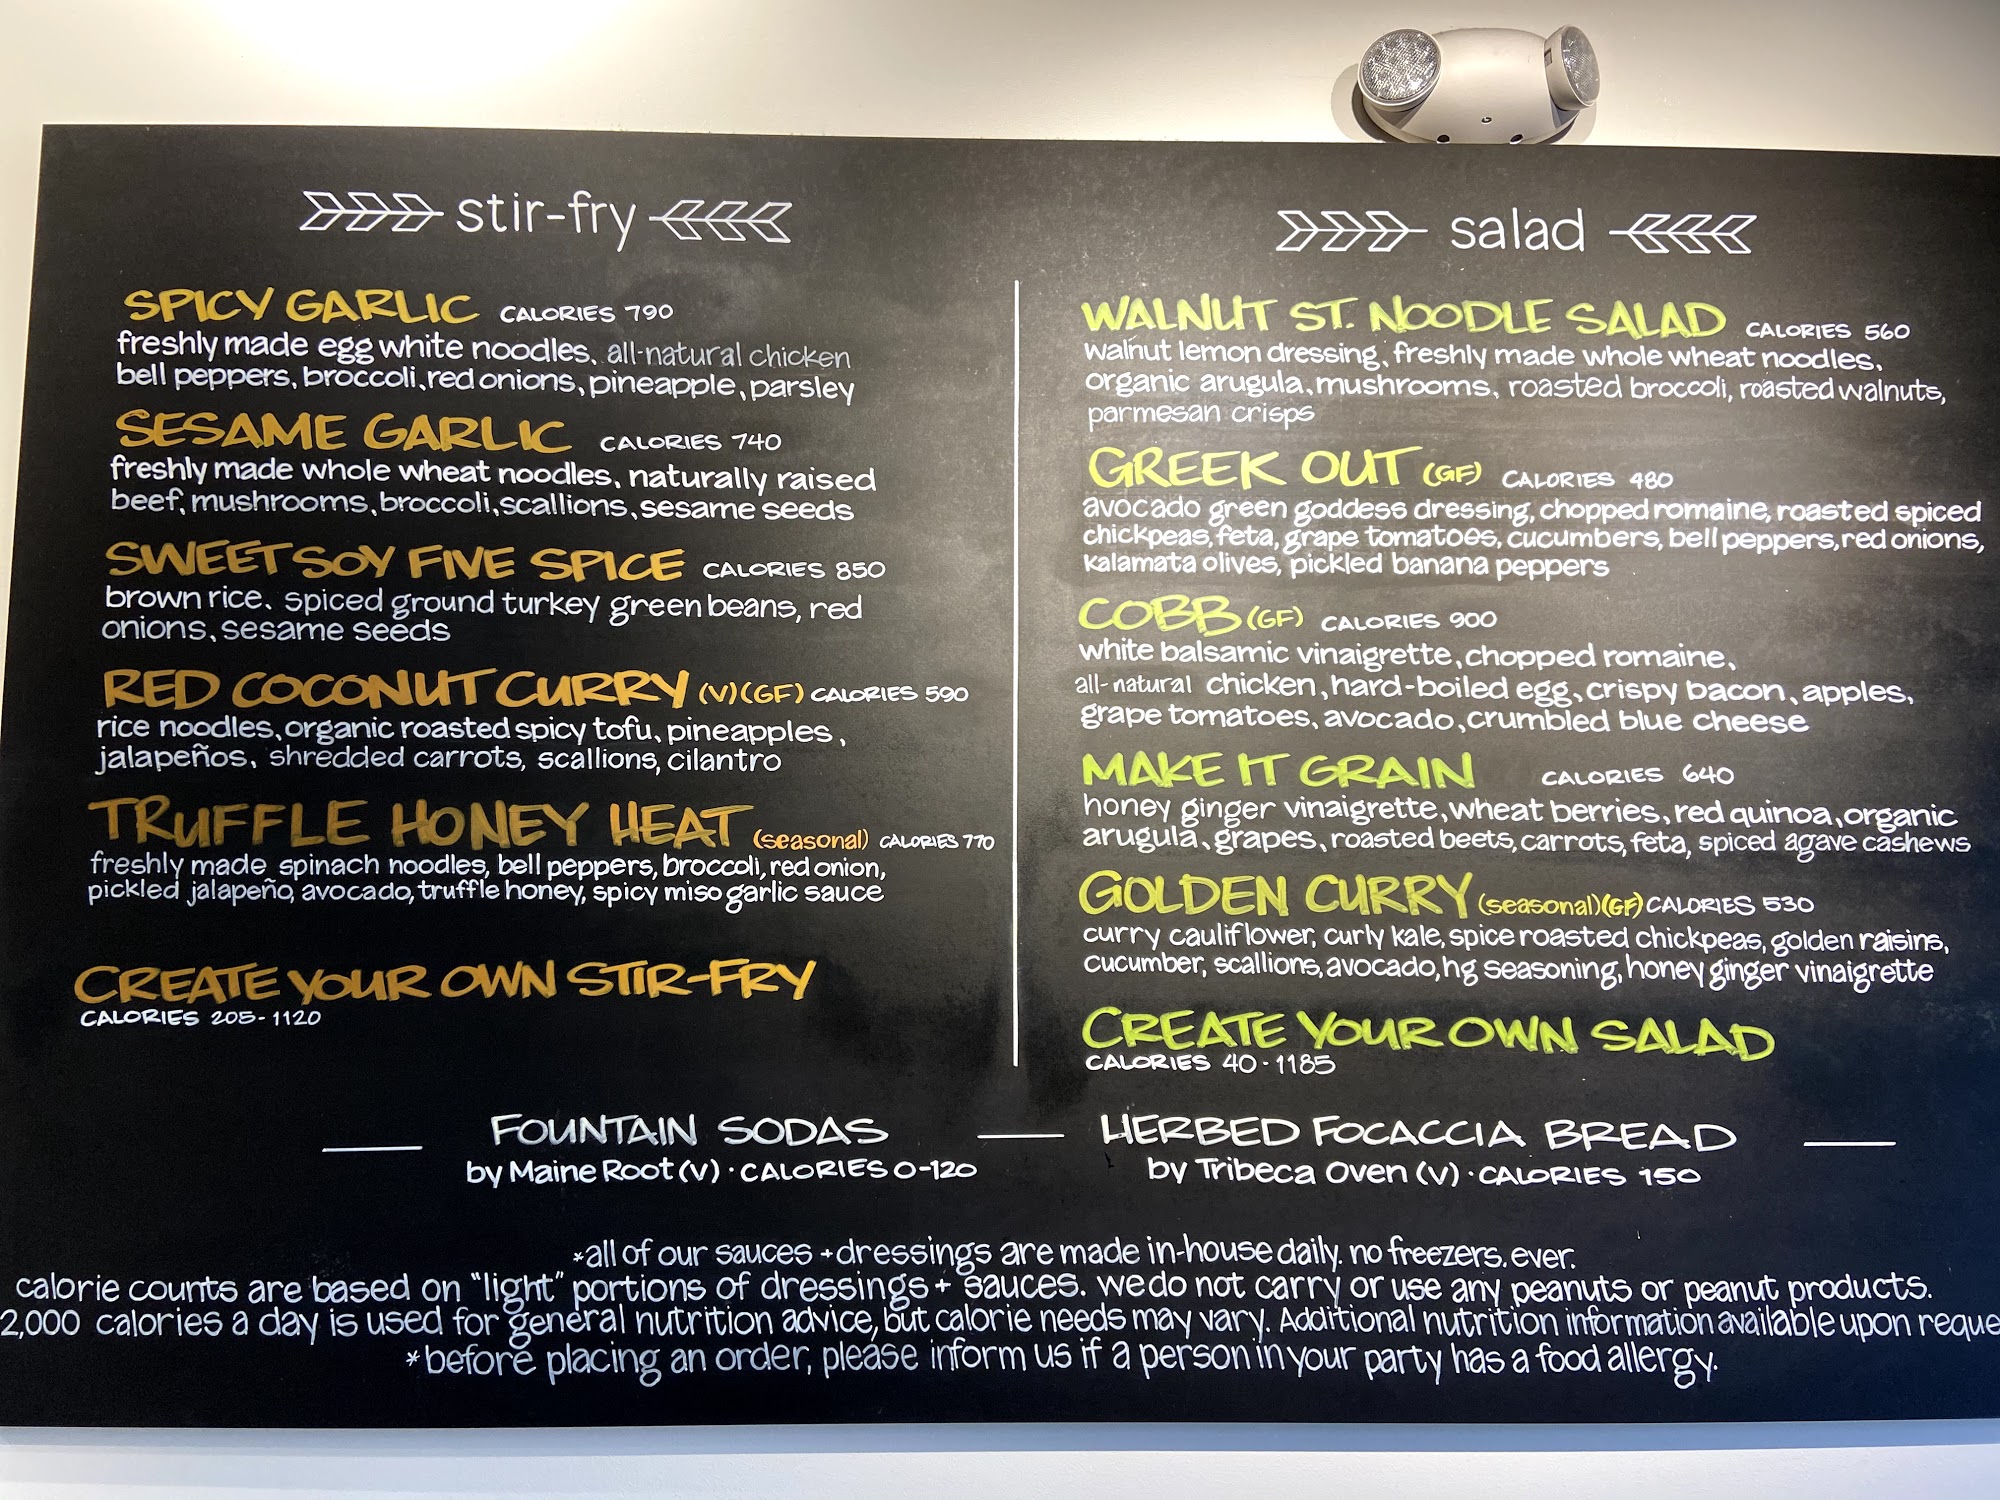 stir-fry
SPICY GARLIC CALORIES 790
freshly made egg white noodles, all-natural chicken
bell peppers, broccoli, red onions, pineapple, parsley
SESAME GARLIC CALORIES 740
freshly made whole wheat noodles, naturally raised
beef, mushrooms, broccoli, scallions, sesame seeds
SWEET SOY FIVE SPICE CALORIES 850
brown rice. spiced ground turkey green beans, red
onions, sesame seeds
RED COCONUT CURRY (V)(GF) CALORIES 590
rice noodles, organic roasted spicy tofu, pineapples,
jalapeños, shredded carrots, scallions, cilantro
TRUFFLE HONEY HEAT (seasonal) CALORIES 770
freshly made spinach noodles, bell peppers, broccoli, red onion,
pickled jalapeño, avocado, truffle honey, spicy miso garlic sauce
CREATE YOUR OWN STIR-FRY
CALORIES 205-1120
salad
WALNUT ST. NOODLE SALAD CALORIES 560
walnut lemon dressing, freshly made whole wheat noodles,
organic arugula, mushrooms, roasted broccoli, roasted walnuts,
parmesan crisps
GREEK OUT (GF) CALORIES 480
avocado green goddess dressing, chopped romaine, roasted spiced
chickpeas, feta, grape tomatoes, cucumbers, bell peppers, red onions,
kalamata olives, pickled banana peppers
COBB (GF) CALORIES 900
white balsamic vinaigrette, chopped romaine,
all-natural chicken, hard-boiled egg, crispy bacon, apples,
grape tomatoes, avocado, crumbled blue cheese
MAKE IT GRAIN CALORIES 640
honey ginger vinaigrette, wheat berries, red quinoa, organic
arugula, grapes, roasted beets, carrots, feta, spiced agave cashews
GOLDEN CURRY (seasonal)(GF) CALORIES 530
curry cauliflower, curly kale, spice roasted chickpeas, golden raisins,
cucumber, scallions, avocado, hg seasoning, honey ginger vinaigrette
CREATE YOUR OWN SALAD
CALORIES 40-1185
FOUNTAIN SODAS
by Maine Root (V) · CALORIES 0-120
HERBED FOCACCIA BREAD
by Tribeca Oven (V) · CALORIES 150
*all of our sauces + dressings are made in-house daily. no freezers. ever.
calorie counts are based on "light" portions of dressings + sauces. we do not carry or use any peanuts or peanut products.
2,000 calories a day is used for general nutrition advice, but calorie needs may vary. Additional nutrition information available upon reque
*before placing an order, please inform us if a person in your party has a food allergy.